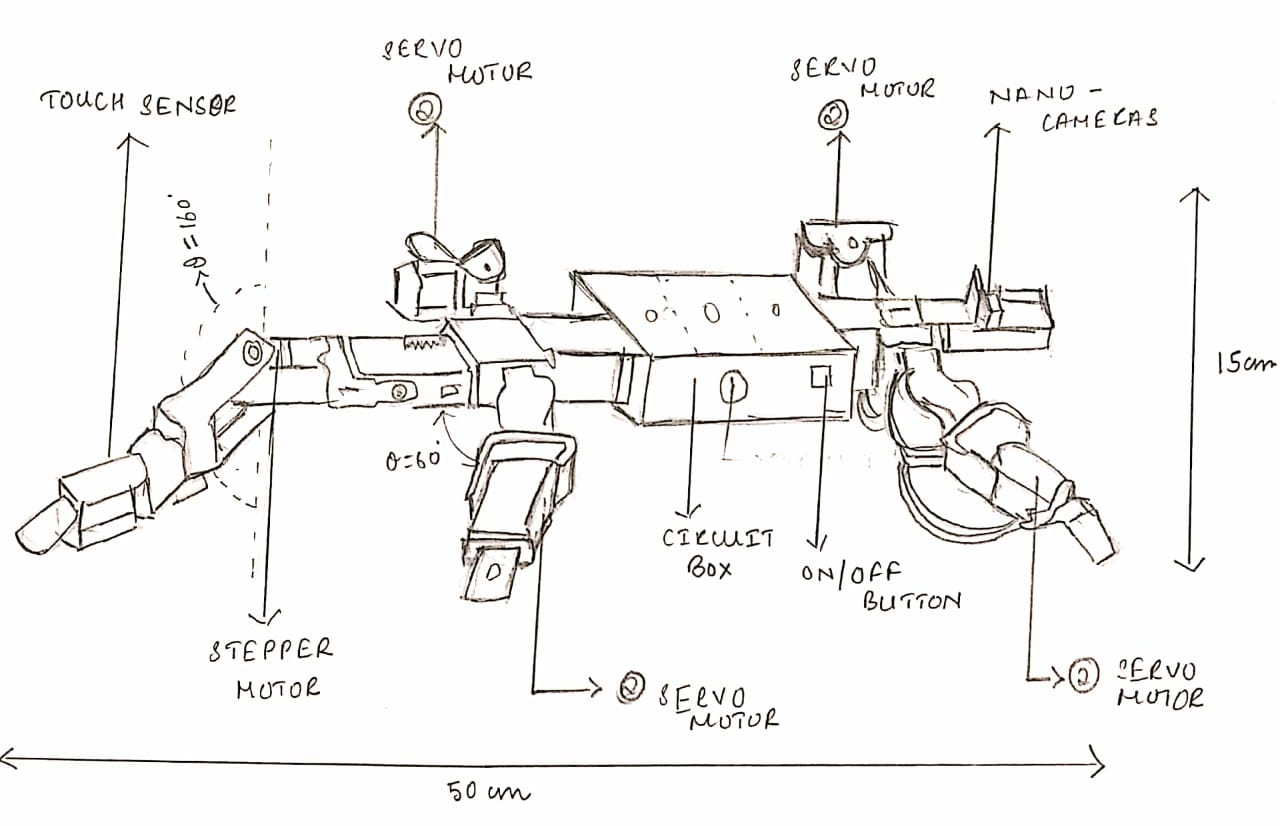 SERVO
MOTOR
②
SERVO
MOTOR
②
NANO -
CAMERAS
TOUCH SENSOR
θ=160°
15cm
θ=60°
CIRCUIT
BOX
ON/OFF
BUTTON
STEPPER
MOTOR
② SERVO
MOTOR
② SERVO
MOTOR
50 cm